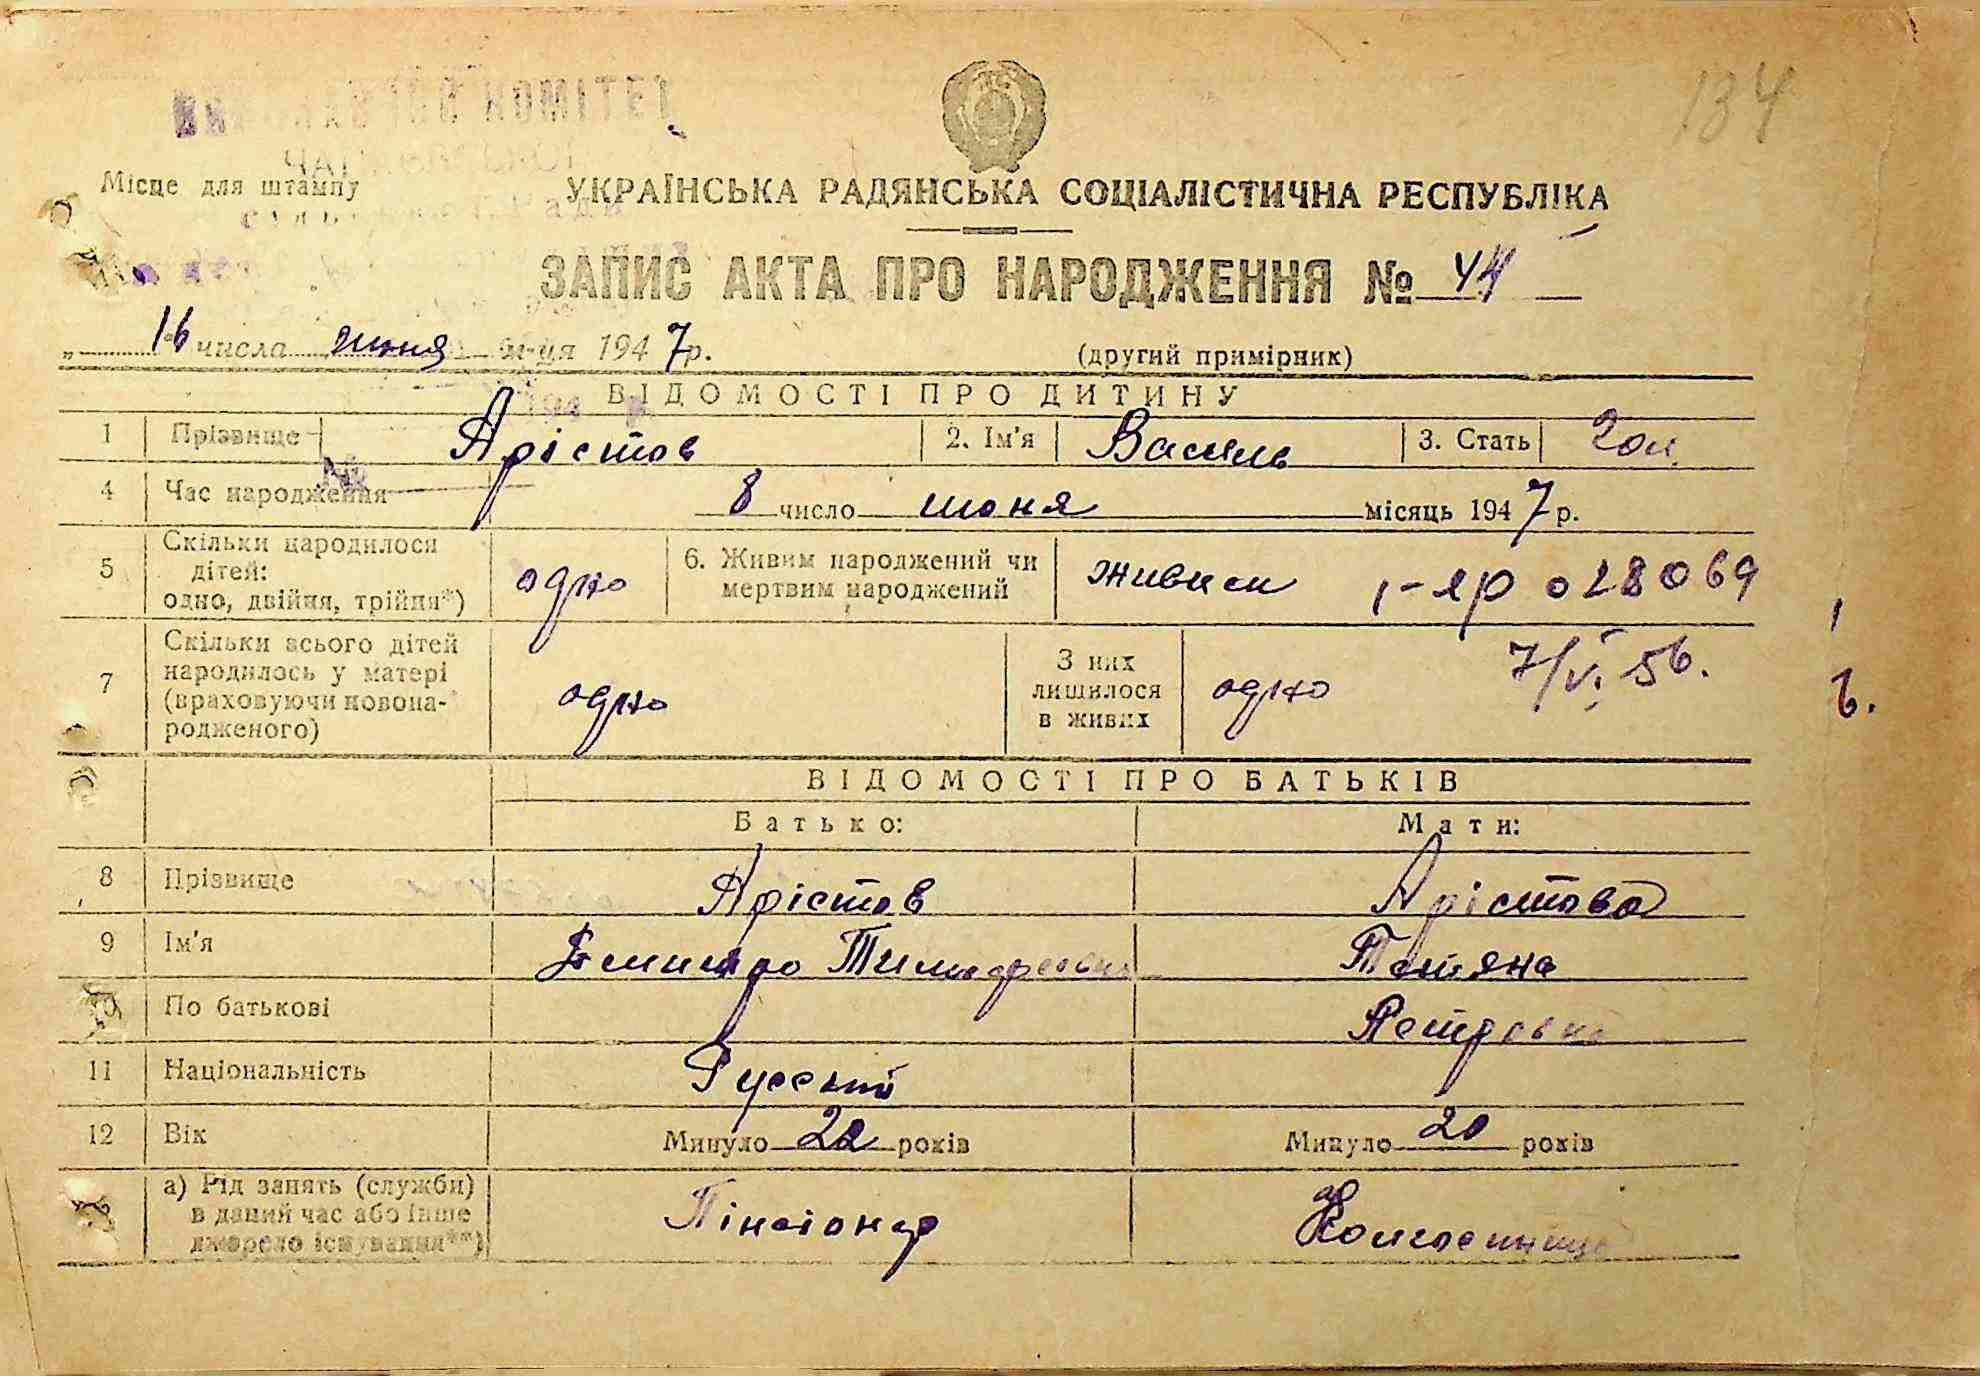 134
КОМІТЕТ
Місце для штампу
УКРАЇНСЬКА РАДЯНСЬКА СОЦІАЛІСТИЧНА РЕСПУБЛІКА
ЗАПИС АКТА ПРО НАРОДЖЕННЯ № 44
„ 16 числа июня м-ця 1947 р.
(другий примірник)
ВІДОМОСТІ ПРО ДИТИНУ
1 Прізвище Арістов 2. Ім'я Василь 3. Стать чол.
4 Час народження 8 число июня місяць 1947 р.
5 Скільки народилося дітей: одно, двійня, трійня*) одно 6. Живим народжений чи мертвим народжений живим 1-ЯР 028069
7 Скільки всього дітей народилось у матері (враховуючи новонародженого) одно З них лишилося в живих одно 7/VI 56.
ВІДОМОСТІ ПРО БАТЬКІВ
Батько: Мати:
8 Прізвище Арістов Арістова
9 Ім'я Дмитро Тимофеевич Тетяна
10 По батькові Петровна
11 Національність Русский
12 Вік Минуло 22 років Минуло 20 років
а) Рід занять (служби) в даний час або інше джерело існування**) Пінсіонер Колгоспниця